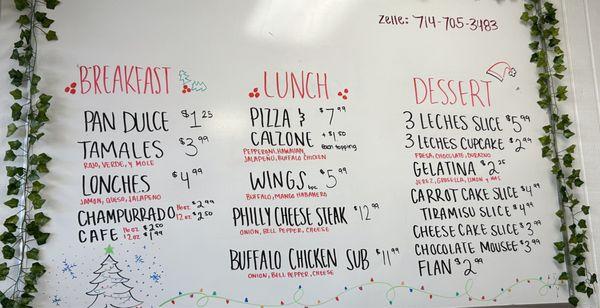 Zelle: 714-705-3483
BREAKFAST
PAN DULCE $1.25
TAMALES $3.99
ROJO, VERDE, Y MOLE
LONCHES $4.99
JAMON, QUESO, JALAPEÑO
CHAMPURRADO 16oz. $2.99
12oz. $2.50
CAFE 16oz $2.50
12oz $1.99
LUNCH
PIZZA & $7.99
CALZONE +$1.50
each topping
PEPPERONI, HAWAIIAN,
JALAPEÑO, BUFFALO CHICKEN
WINGS 6pc $5.99
BUFFALO, MANGO HABANERO
PHILLY CHEESE STEAK $12.99
ONION, BELL PEPPER, CHEESE
BUFFALO CHICKEN SUB $11.99
ONION, BELL PEPPER, CHEESE
DESSERT
3 LECHES SLICE $5.99
3 LECHES CUPCAKE $2.99
FRESA, CHOCOLATE, DURAZNO
GELATINA $2.25
JEREZ, GROSELLA, LIMON Y MAS
CARROT CAKE SLICE $4.99
TIRAMISU SLICE $4.99
CHEESE CAKE SLICE $3.99
CHOCOLATE MOUSEE $3.99
FLAN $2.99